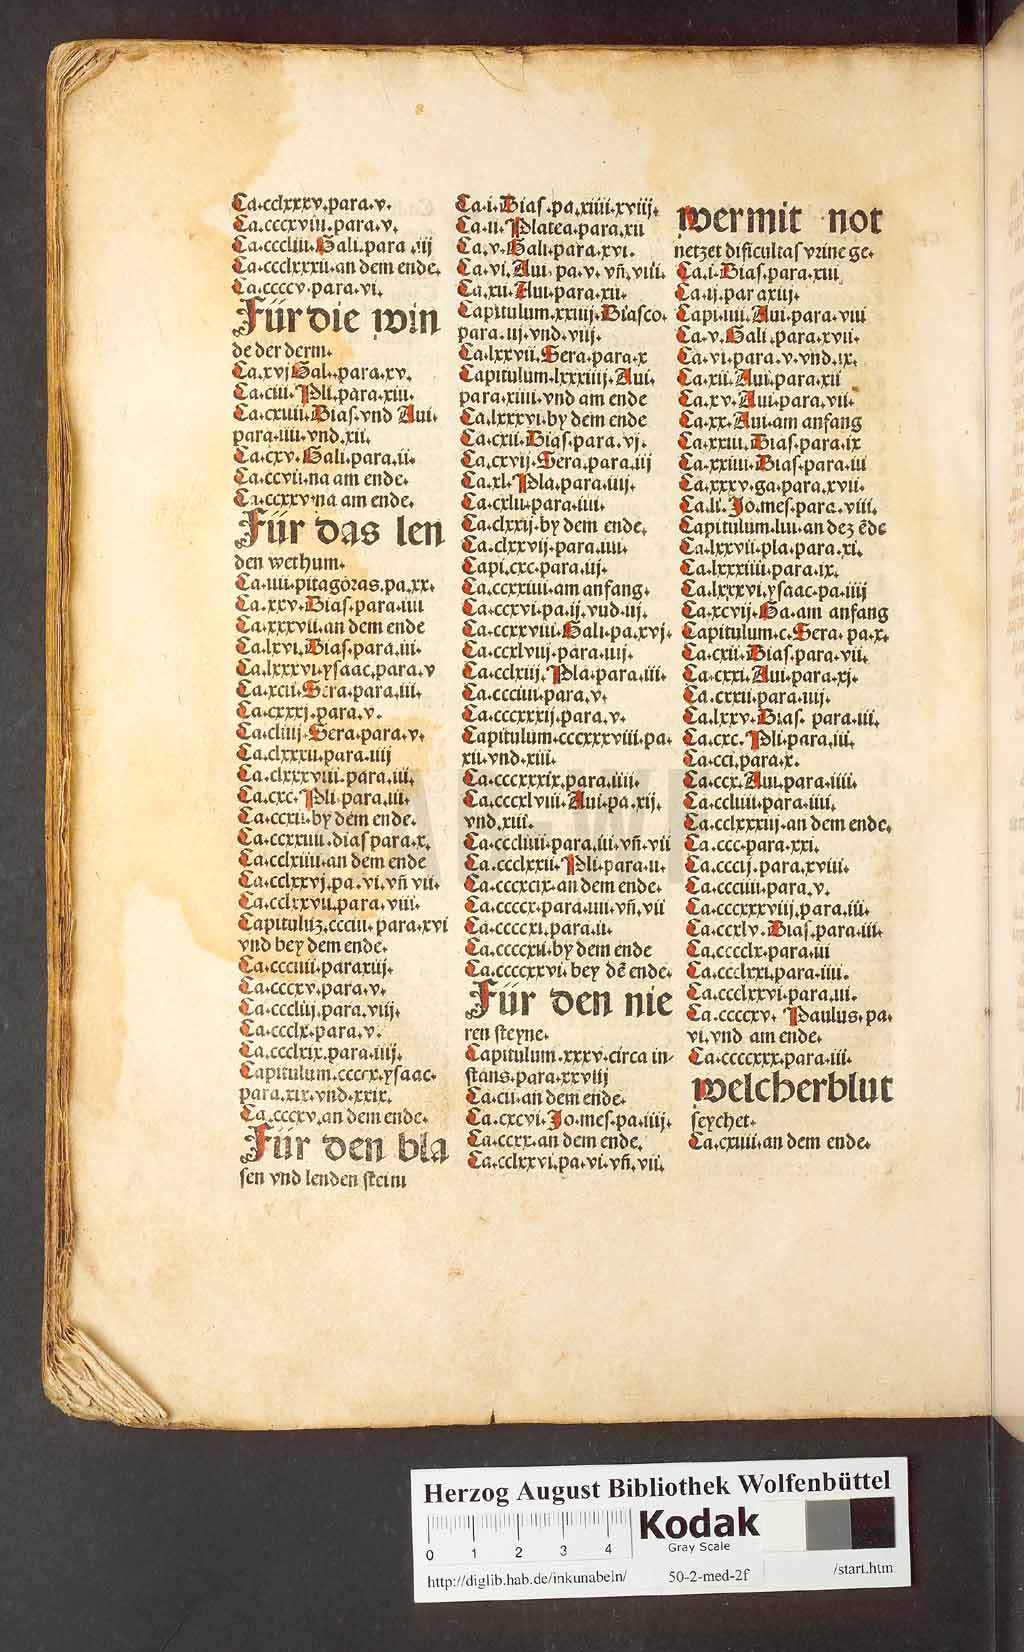 Ca.cclxxxv.para.v.
Ca.cccxviii.para.v.
Ca.cccliii.Gali.para.iij
Ca.ccclxxxii.an dem ende.
Ca.ccccv.para.vi.
Für die win
de der derm.
Ca.xvj Gal.para.xv.
Ca.ciii.Pli.para.xiii.
Ca.cxiiii.Dias.vnd Aui.
para.iiii.vnd.xii.
Ca.cxv.Gali.para.ii.
Ca.ccvii.na am ende.
Ca.ccxxv.na am ende.
Für das len
den wethum.
Ca.iiii.pitagoras.pa.xx.
Ca.xxv.Dias.para.iiii
Ca.xxxvii.an dem ende
Ca.lxvi.Dias.para.iii.
Ca.lxxxvi.ysaac.para.v
Ca.xcii.Sera.para.iii.
Ca.cxxxj.para.v.
Ca.cliiij.Sera.para.v.
Ca.clxxxii.para.iiij
Ca.clxxxviii.para.iii.
Ca.cxc.Pli.para.iii.
Ca.ccxii.by dem ende.
Ca.ccxxiiii.dias para.x.
Ca.cclxiiii.an dem ende
Ca.cclxxvj.pa.vi.vñ vii.
Ca.cclxxvii.para.viii.
Capitulūz.ccciii.para.xvi
vnd bey dem ende.
Ca.ccciiii.para xiij.
Ca.cccxv.para.v.
Ca.cccliij.para.viij.
Ca.ccclx.para.v.
Ca.ccclxix.para.iiij.
Capitulum.ccccx.ysaac.
para.xix.vnd.xxix.
Ca.cccxv.an dem ende.
Für den bla
sen vnd lenden stein
Ca.i.Dias.pa.xiiii.xviij.
Ca.ii.Platea.para.xii
Ca.v.Gali.para.xvi.
Ca.vi.Aui.pa.v.vñ.viii.
Ca.xii.Aui.para.xii.
Capitulum.xxiij.Diasco.
para.iij.vnd.viij.
Ca.lxxvii.Sera.para.x
Capitulum.lxxxiiij.Aui.
para.xiiii.vnd am ende
Ca.lxxxvi.by dem ende
Ca.cxii.Dias.para.vj.
Ca.cxvij.Sera.para.iij
Ca.xl.Pla.para.iiij.
Ca.cxlii.para.iiii.
Ca.clxxij.by dem ende.
Ca.clxxvij.para.iiii.
Capi.cxc.para.iij.
Ca.ccxxiiii.am anfang.
Ca.ccxvi.pa.ij.vnd.iij.
Ca.ccxxviii.Gali.pa.xvj.
Ca.ccxlviij.para.iiij.
Ca.cclxiij.Pla.para.iii.
Ca.ccciiii.para.v.
Ca.cccxxxij.para.v.
Capitulum.cccxxxviii.pa.
xii.vnd.xiii.
Ca.cccxxxix.para.iiii.
Ca.cccxlviii.Aui.pa.xij.
vnd.xiii.
Ca.cccliiii.para.iii.vñ.vii
Ca.ccclxxii.Pli.para.ii.
Ca.cccxcix.an dem ende.
Ca.ccccx.para.iiii.vñ.vii
Ca.ccccxi.para.ii.
Ca.ccccxii.by dem ende
Ca.ccccxxvi.bey dē ende.
Für den nie
ren steyne.
Capitulum.xxxv.circa in-
stans.para.xxviij
Ca.cii.an dem ende.
Ca.cxcvi.Jo.mes.pa.iiij.
Ca.ccxx.an dem ende.
Ca.cclxxvi.pa.vi.vñ.vii.
wermit not
netzet dificultas vrine ge.
Ca.i.Dias.para.xiii
Ca.ij.para xiij.
Capi.iiii.Aui.para.viii
Ca.v.Gali.para.xvii.
Ca.vi.para.v.vnd.ix.
Ca.xii.Aui.para.xii
Ca.xv.Aui.para.vii.
Ca.xx.Aui.am anfang
Ca.xxiii.Dias.para.ix
Ca.xxiiii.Dias.para.iii
Ca.xxxv.ga.para.xvii.
Ca.li.Jo.mes.para.viii.
Capitulum.liii.an dez ēde
Ca.lxxvii.pla.para.xi.
Ca.lxxxiiii.para.ix.
Ca.lxxxvi.ysaac.pa.iiij
Ca.xcvij.Ga.am anfang
Capitulum.c.Sera.pa.x.
Ca.cxii.Dias.para.vii.
Ca.cxxi.Aui.para.xj.
Ca.cxxii.para.iiij.
Ca.lxxv.Dias.para.iii.
Ca.cxc.Pli.para.iii.
Ca.cci.para.x.
Ca.ccx.Aui.para.iiii.
Ca.ccliiii.para.iiii.
Ca.cclxxxiij.an dem ende.
Ca.ccc.para.xxi.
Ca.cccij.para.xviii.
Ca.ccciiii.para.v.
Ca.cccxxxviij.para.iii.
Ca.ccxlv.Dias.para.iii.
Ca.cccclx.para.iii
Ca.ccclxxi.para.iiii.
Ca.ccclxxvi.para.iii.
Ca.ccccxv.Paulus.pa.
vi.vnd am ende.
Ca.ccccxxx.para.iii.
welcher blut
seychet.
Ca.cxiiii.an dem ende.
Herzog August Bibliothek Wolfenbüttel
0 1 2 3 4
Kodak
Gray Scale
http://diglib.hab.de/inkunabeln/ 50-2-med-2f /start.htm